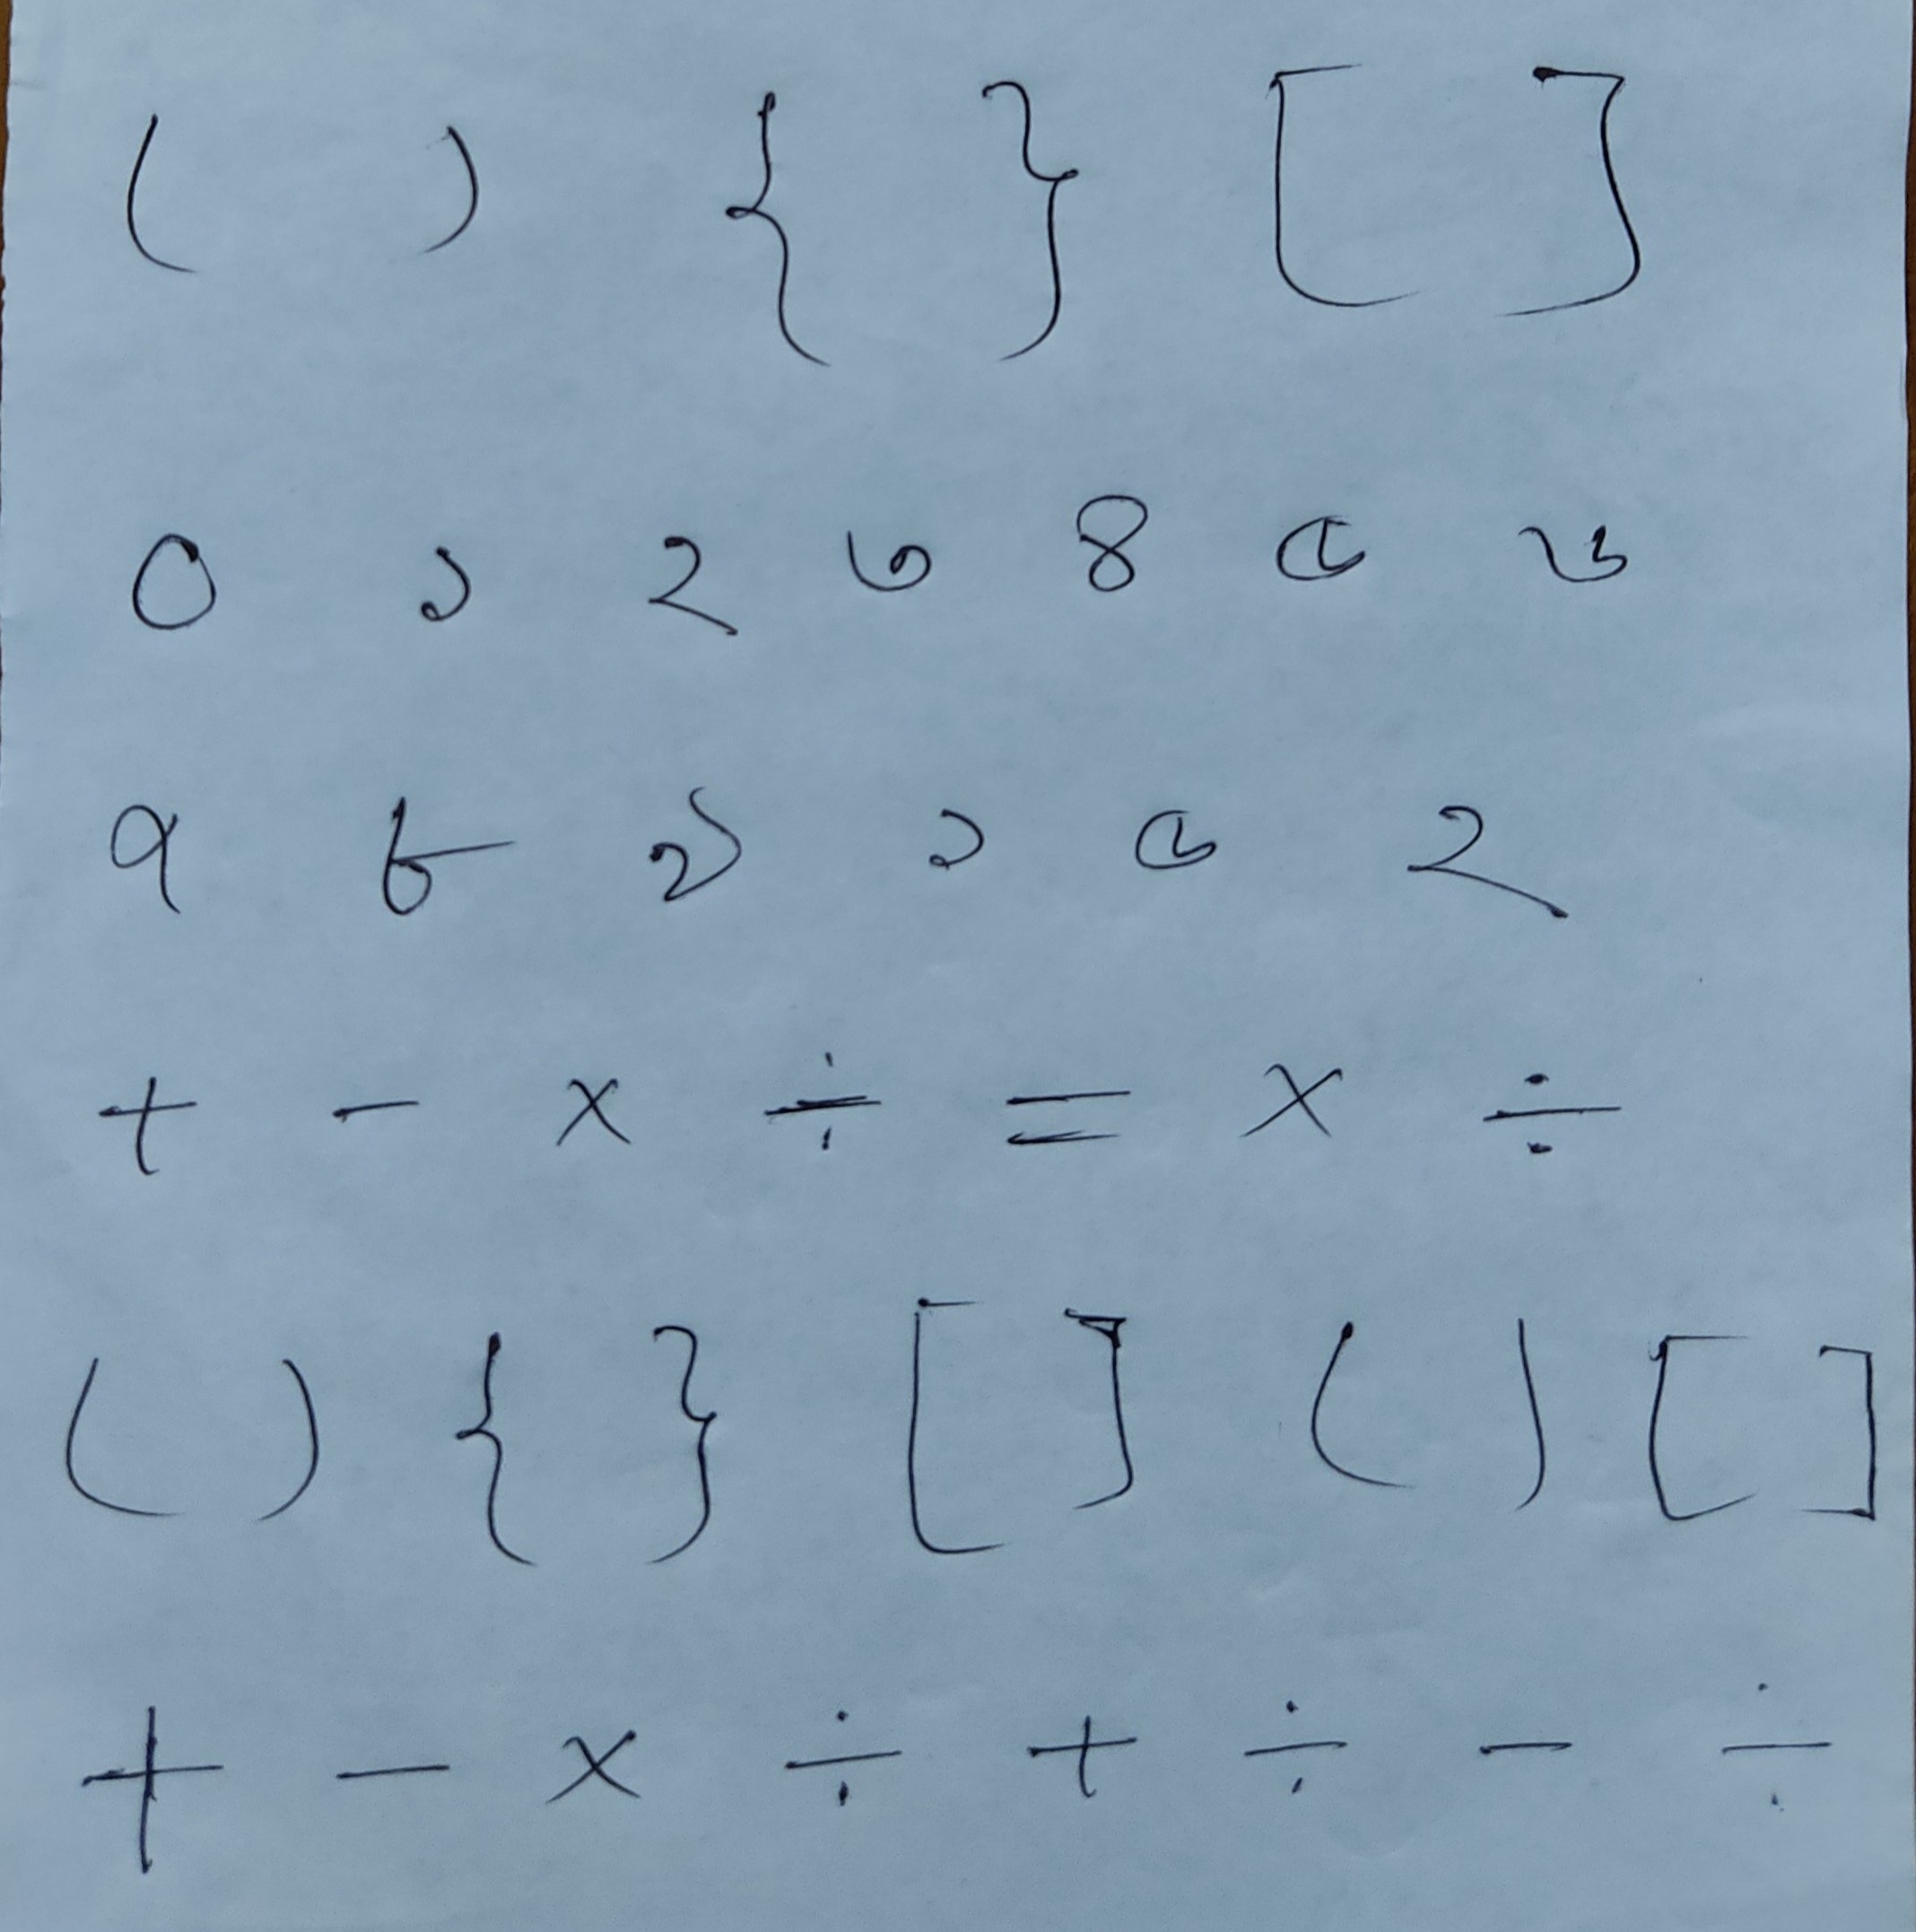 ( ) { } [ ]
০ ১ ২ ৩ ৪ ৫ ৬
৭ ৮ ৯ ১ ৫ ২
+ - × ÷ = × ÷
( ) { } [ ] ( ) [ ]
+ - × ÷ + ÷ - ÷